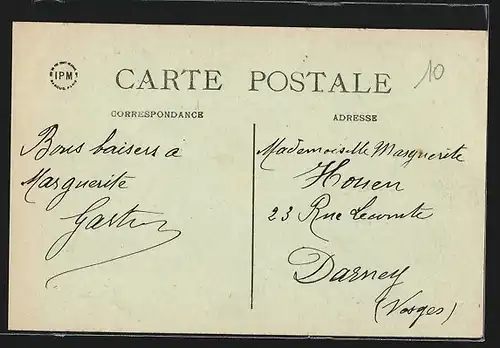 IPM
CARTE POSTALE
10
CORRESPONDANCE
Bons baisers a
Marguerite
Gaston
ADRESSE
Mademoiselle Marguerite
Houen
23 Rue Lecomte
Darney
(Vosges)